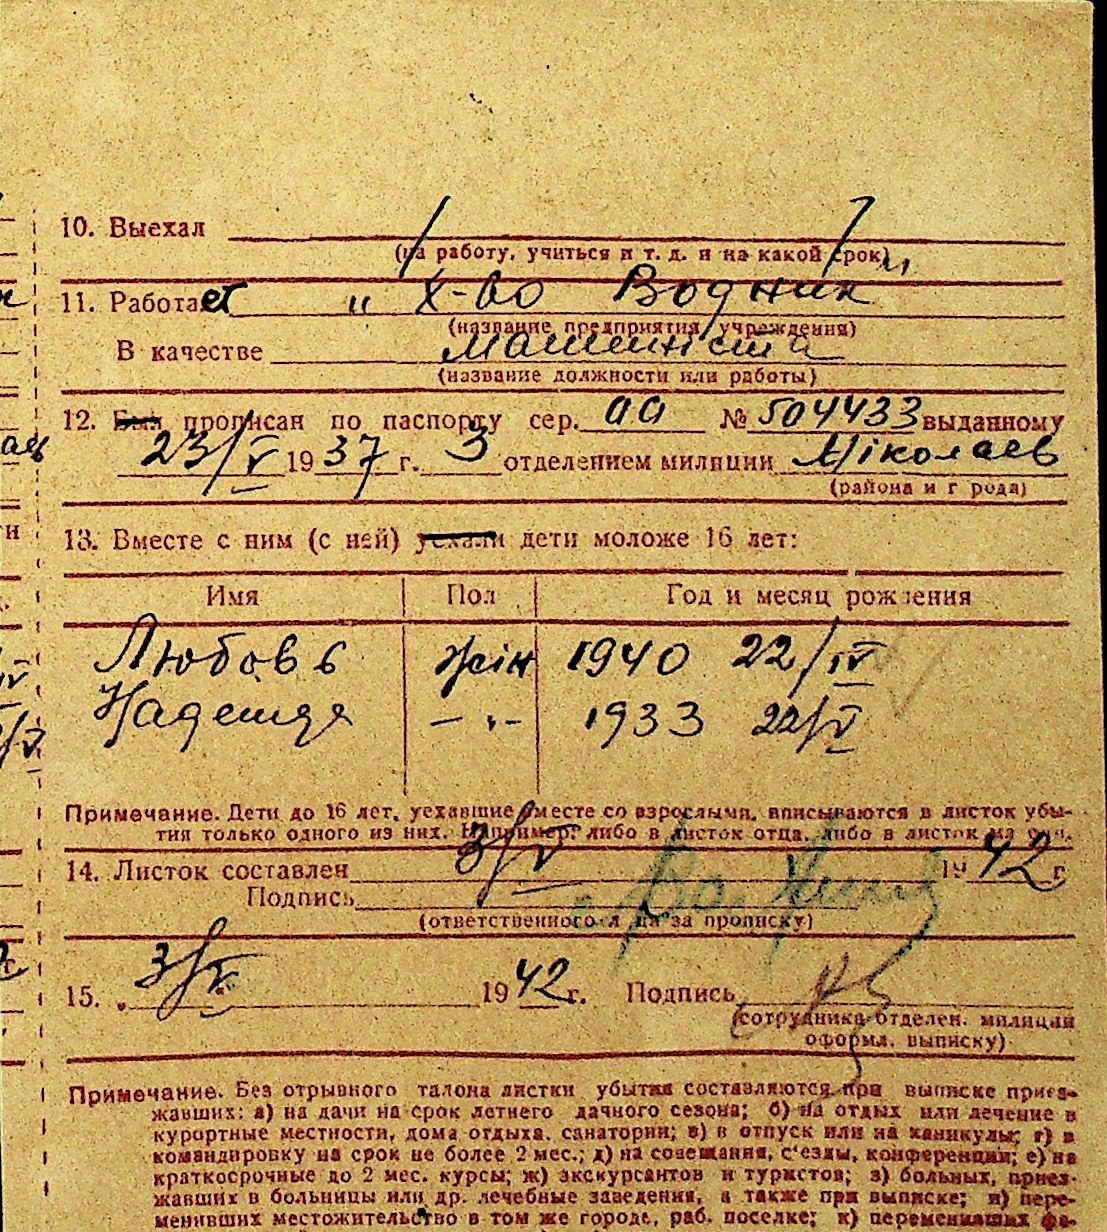 10. Выехал
(на работу, учиться и т. д. и на какой срок)
11. Работает " Х-во Водник "
(название предприятия, учреждения)
В качестве машиніста
(название должности или работы)
12. Был прописан по паспорту сер. аа № 504433 выданному
23/V 1937 г. 3 отделением милиции Міколаев
(района и города)
13. Вместе с ним (с ней) уехали дети моложе 16 лет:
Имя Пол Год и месяц рождения
Любовь жін 1940 22/IV
Надежда —"— 1933 22/V
Примечание. Дети до 16 лет, уехавшие вместе со взрослыми, вписываются в листок убы-
тия только одного из них. Например: либо в листок отца, либо в листок
14. Листок составлен 3/V 1942 г.
Подпись
(ответственного лица за прописку)
15. " 3/V " 1942 г. Подпись
(сотрудника отделен. милиции
оформл. выписку)
Примечание. Без отрывного талона листки убытия составляются при выписке приез-
жавших: а) на дачи на срок летнего дачного сезона; б) на отдых или лечение в
курортные местности, дома отдыха, санатории; в) в отпуск или на каникулы; г) в
командировку на срок не более 2 мес.; д) на совещания, с'езды, конференции; е) на
краткосрочные до 2 мес. курсы; ж) экскурсантов и туристов; з) больных, приез-
жавших в больницы или др. лечебные заведения, а также при выписке; и) пере-
менивших местожительство в том же городе, раб. поселке; к) переменивших